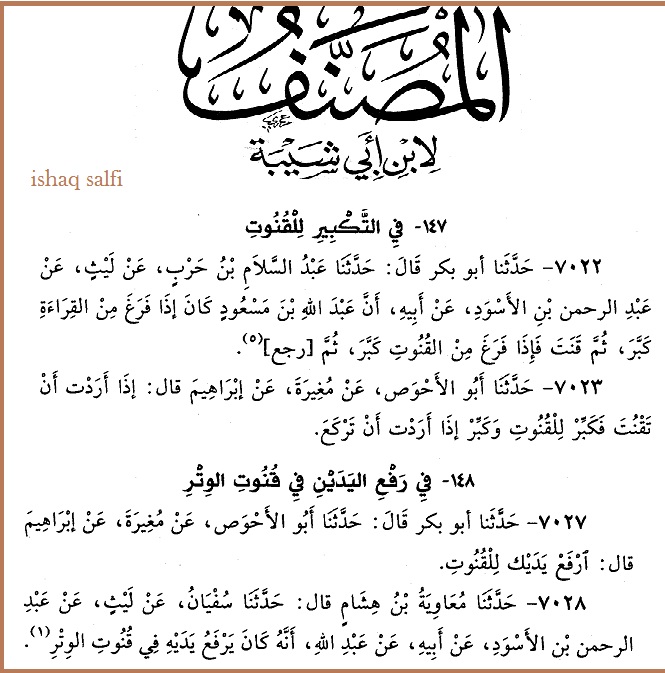 المُصَنَّف
لِابْنِ أَبِي شَيْبَة
ishaq salfi
١٤٧- فِي التَّكْبِيرِ لِلْقُنُوتِ
٧٠٢٢- حَدَّثَنا أبو بكر قَالَ: حَدَّثَنَا عَبْدُ السَّلاَمِ بْنُ حَرْبٍ، عَنْ لَيْثٍ، عَنْ
عَبْدِ الرحمن بْنِ الأَسْوَدِ، عَنْ أَبِيهِ، أَنَّ عَبْدَ اللهِ بْنَ مَسْعُودٍ كَانَ إذَا فَرَغَ مِنْ القِرَاءَةِ
كَبَّرَ، ثُمَّ قَنَتَ فَإِذَا فَرَغَ مِنْ القُنُوتِ كَبَّرَ، ثُمَّ [رجع](٥).
٧٠٢٣- حَدَّثَنَا أَبُو الأَحْوَصِ، عَنْ مُغِيرَةَ، عَنْ إبْرَاهِيمَ قال: إذَا أَرَدْت أَنْ
تَقْنُتَ فَكَبِّرْ لِلْقُنُوتِ وَكَبِّرْ إذَا أَرَدْت أَنْ تَرْكَعَ.
١٤٨- فِي رَفْعِ اليَدَيْنِ فِي قُنُوتِ الوِتْرِ
٧٠٢٧- حَدَّثَنا أبو بكر قَالَ: حَدَّثَنَا أَبُو الأَحْوَصِ، عَنْ مُغِيرَةَ، عَنْ إبْرَاهِيمَ
قال: ٱرْفَعْ يَدَيْك لِلْقُنُوتِ.
٧٠٢٨- حَدَّثَنَا مُعَاوِيَةُ بْنُ هِشَامٍ قال: حَدَّثَنَا سُفْيَانُ، عَنْ لَيْثٍ، عَنْ عَبْدِ
الرحمن بْنِ الأَسْوَدِ، عَنْ أَبِيهِ، عَنْ عَبْدِ اللهِ، أَنَّهُ كَانَ يَرْفَعُ يَدَيْهِ فِي قُنُوتِ الوِتْرِ(١).